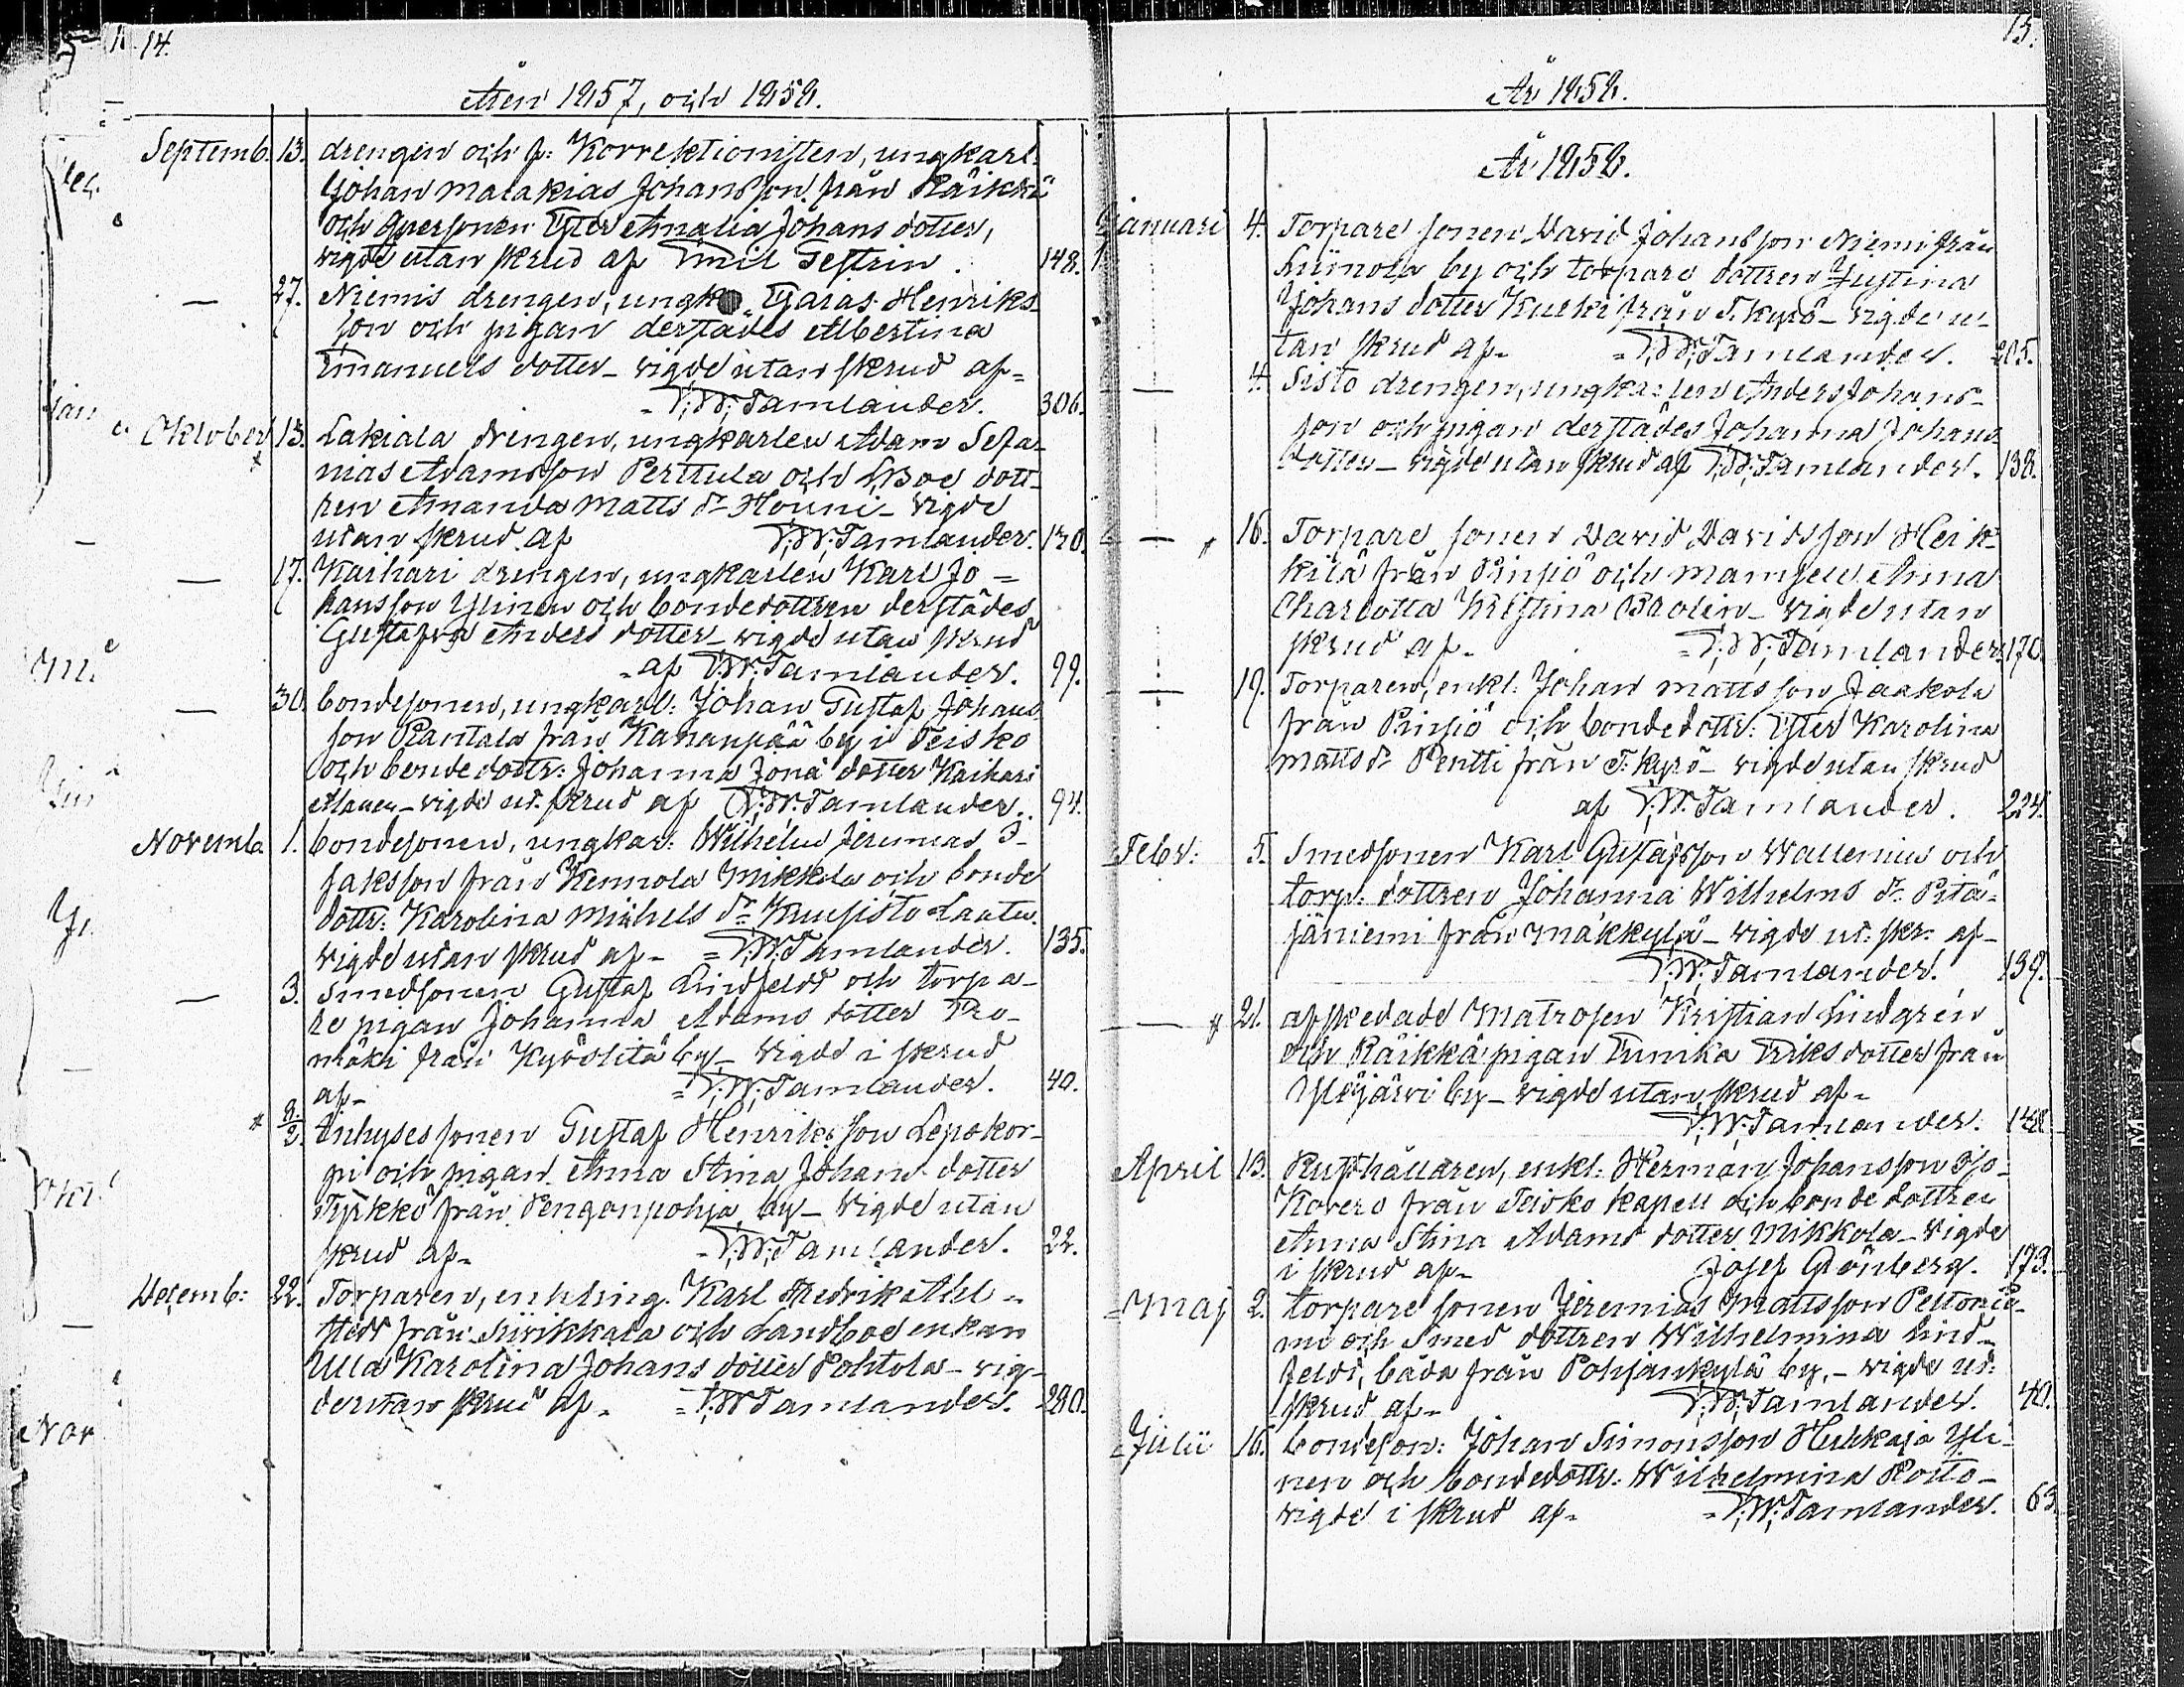 14.
Åren 1857, och 1858.
Septemb. 13. drengen och f: Korrektionisten, ungkarl:
Johan Malakias Johansson från Räikkä
och qpersonen Ester Amalia Johans dotter,
vigde utan skrud af Emil Gestrin. 148.
— 27. Niemis drengen, ungk Esaias Henriks-
son och pigan derstädes Albertina
Emanuels dotter – vigde utan skrud af =
= T. W. Tamlander. 306.
Oktober 13. Lakiala drengen, ungkarlen Adam Sefa-
nias Adamsson Perttula och LBoe dott-
ren Amanda Matts dr Houni – vigde
utan skrud af T. W. Tamlander. 120.
— 17. Kaihari drengen, ungkarlen Karl Jo =
hansson Ylinen och bondedottren derstädes
Gustafva Anders dotter – vigde utan skrud
- af T. W. Tamlander. 99.
— 30. bondesonen, ungkarl: Johan Gustaf Johans
son Rantala från Kananpää by i Teisko
och bonde dottr: Johanna Jona dotter Kaihari
Alanen – vigde ut. skrud af T. W. Tamlander. 94.
Novemb. 1. bondesonen, ungkar: Wilhelm Jeremias I-
saksson från Kemnola Mikkola och bonde
dottr: Karolina Michels dr Kuusisto Lautu
vigde utan skrud af - = T. W. Tamlander. 135.
— 3. Smedsonen Gustaf Lindfeldt och torpa-
re pigan Johanna Adams dotter
mäki från Kyöstilä by – vigde i skrud
af - = T. W. Tamlander. 40.
* 8/2. Inhyses sonen Gustaf Henriksson Lepokor-
pi och pigan Anna Stina Johans dotter
Tyrkkö från Pengonpohja by – vigde utan
skrud af - - T. W. Tamlander. 22.
Decemb: 22. Torparen, enkling. Karl Fredrik Ahl =
stedt från Siivikkala och Landboe enkan
Ulla Karolina Johans dotter Pohtola – vig-
de utan skrud af - = T. W. Tamlander. 280.
15.
År 1858.
År 1858.
Januari 4. Torpare sonen David Johansson Niemi från
Liinola by och torpare dottren Justina
Johans dotter Kurki från T. kyrö – vigde u-
tan skrud af - = T. W. Tamlander. 205.
— 4. Sisto drengen, ungkarlen Anders Johans-
son och pigan derstädes Johanna Johans
dotter – vigde utan skrud af T. W. Tamlander. 138.
— * 16. Torpare sonen David Davidsson Heik-
kilä från Pinsiö och mamsell Anna
Charlotta Kristina Brolin – vigde utan
skrud af - = T. W. Tamlander 170.
— 19. Torparen, enkl: Johan Mattsson Jaakola
från Pinsiö och bonde dottr: Ester Karolina
Matts dr Pentti från T. kyrö – vigde utan skrud
af T. W. Tamlander. 224.
Febr: 5. Smedsonen Karl Gustafsson Wallenius och
torp: dottren Johanna Wilhelms dr Pitä-
jäniemi från Mäkkylä – vigde ut: skr: af -
T. W. Tamlander. 139.
— * 21. afskedade Matrosen Kristian Lindgrén
och Räikkä pigan Eunika Eriks dotter från
Ylöjärvi by – vigde utan skrud af -
T. W. Tamlander. 148
April 13. Rusthållaren, enkl: Herman Johansson Iso-
Kovero från Teisko kapell och bonde dottren
Anna Stina Adams dotter Mikkola – vigde
i skrud af - Josef Grönberg. 173.
Maj 2. torpare sonen Jeremias Mattsson Peltonie-
mi och Smed dottren Wilhelmina Lind-
feldt, båda från Pohjankylä by, – vigde ut:
skrud af - T. W. Tamlander. 40.
Julii 16. bondeson: Johan Simonsson Huhkaja Yli-
nen och bondedottr: Wilhelmina Rosto –
vigde i skrud af - = T. W. Tamlander. 63.